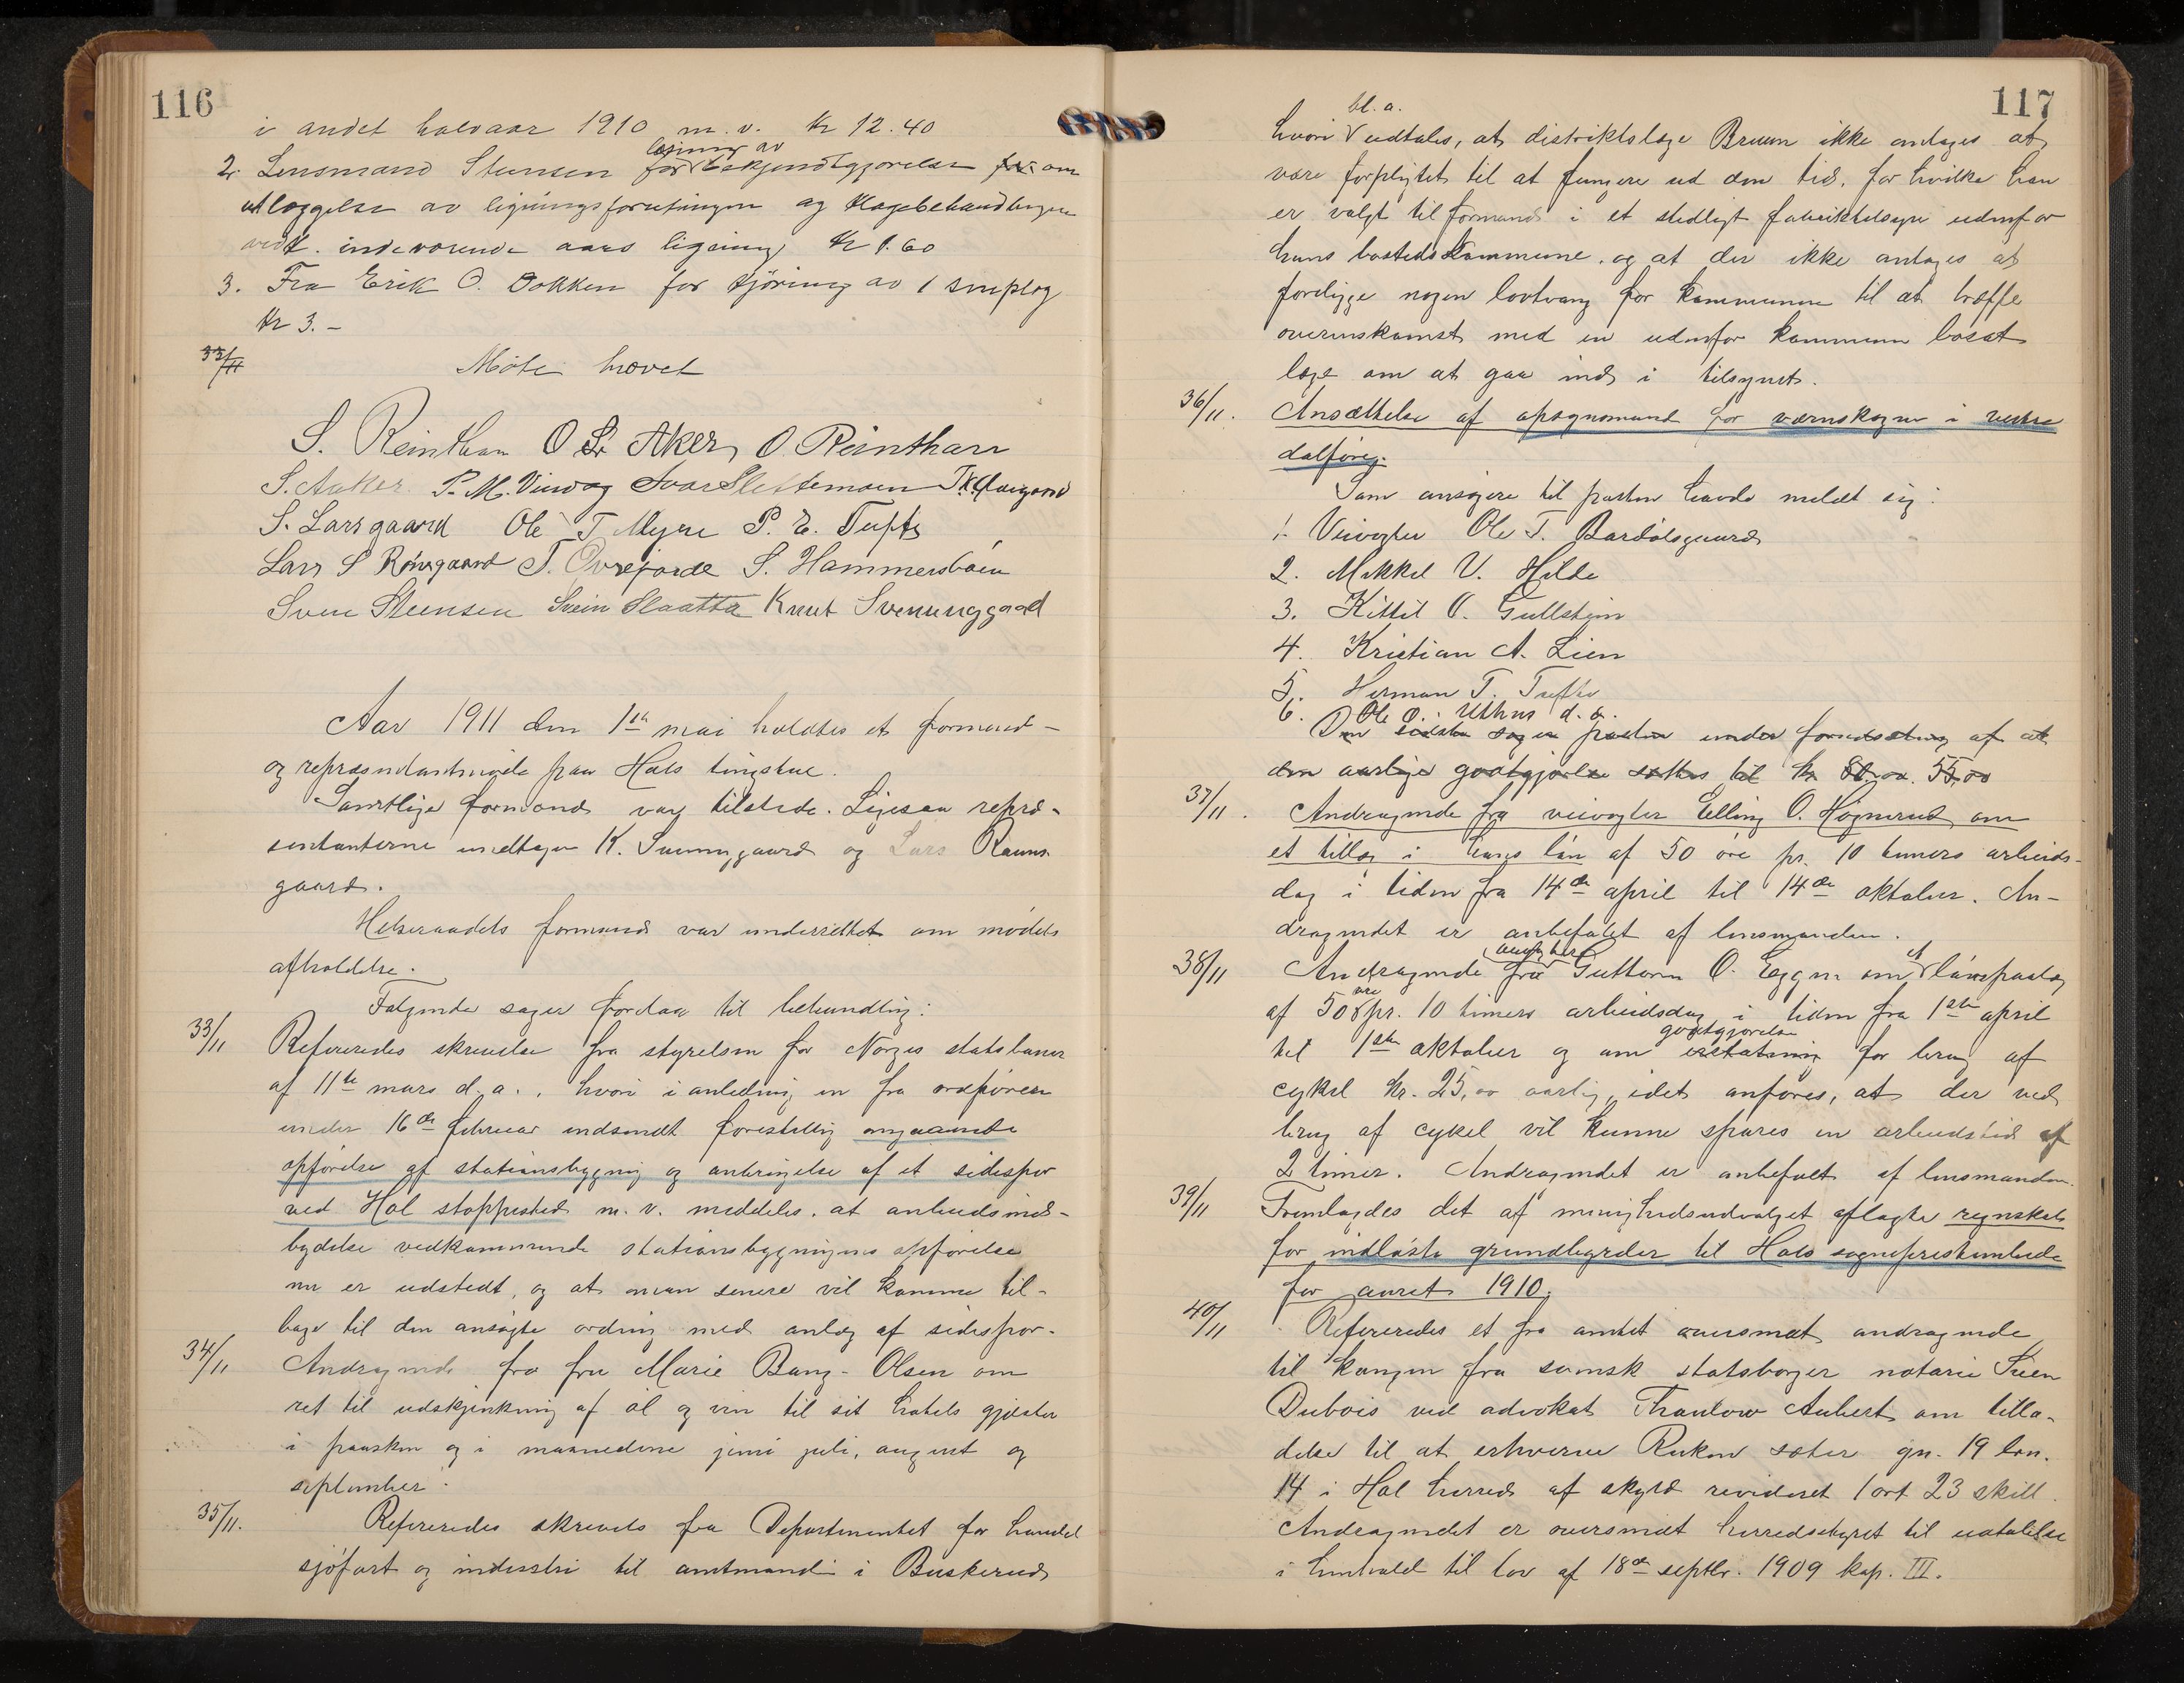 116
i andet halvaar 1910 m.v. kr 12.40
2. Lensmand Steensen for læsning av bekjendtgjørelse om
utlæggelse av ligningsforretningen og klagebehandlingen
vedk. indeværende aars ligning kr 1.60
3. Fra Erik O. Dokken for kjøring av 1 sneplog
kr 3.-
33/11
Møte hævet
S. Reinthon O Sr Aker, O. Reinthon
S. Aaker. P. M. Vindeg Ivar Slettemoen
S. Larsgaard Ole T Myre P. E. Tufte
Lars S Rønsgaard T. Øvrejorde S. Hammersbøen
Sven Steensen Svein Slaatta Knut Svenunggaard
Aar 1911 den 1ste mai holdtes et formand-
og repræsentantmøde paa Hols tingstue.
Samtlige formænd var tilstede. Ligesaa repræ-
sentanterne undtagen K. Svenunggaard og Lars Rauns-
gaard.
Helseraadets formand var underrettet om mødets
afholdelse.
Følgende sager forelaa til behandling:
33/11 Refereredes skrivelse fra styrelsen for Norges statsbaner
af 11te mars d.a., hvori i anledning en fra ordføreren
under 16de februar indsendt forestilling angaaende
opførelse af stationsbygning og anbringelse af et sidespor
ved Hol stoppested m.v. meddeles, at anbudsind-
bydelse vedkommende stationsbygningens opførelse
nu er udstedt, og at man senere vil komme til-
bage til den ansøgte ordning med anlæg af sidespor.
34/11 Andragende fra fru Marie Bang-Olsen om
ret til udskjænkning af øl og vin til sit hotels gjæster
i paasken og i maanederne juni juli, august og
september.
35/11. Refereredes skrivels fra Departementet for handel
sjøfart og industri til amtmanden i Buskerud,
117
hvori bl.a. udtales, at distriktslæge Bruun ikke antages at
være forpligtet til at fungere ud den tid, for hvilke han
er valgt til formand i et stedligt fabriktilsyn udenfor
hans bostedskommune, og at der ikke antages at
foreligge nogen lovtvang for kommunen til at træffe
overenskomst med en udenfor kommunen bosat
læge om at gaa ind i tilsynet.
36/11. Ansættelse af opsynsmand for værnskogen i vestre
dalføre.
Som ansøgere til posten havde meldt sig:
1. Veivogter Ole T. Bardølsgaard
2. Mikkel V. Hilde
3. Kittil O. Gullstein
4. Kristian A. Lien
5. Herman T. Tufte
6. Ole O. Uthus d.y.
Den sidste søger posten under forudsætning af at
den aarlige godtgjørelse sættes til kr 55,00
37/11. Andragende fra veivogter Elling O. Høgnerud om
et tillæg i hans løn af 50 øre pr. 10 timers arbeids-
dag i tiden fra 14de april til 14de oktober. An-
dragendet er anbefalet af lensmanden.
38/11 Andragende fra veivogter Guttorm O. Eggen om et lønspaalæg
af 50 øre pr. 10 timers arbeidsdag i tiden fra 1ste april
til 1ste oktober og om godtgjørelse for brug af
cykel kr. 25,00 aarlig, idet anføres, at der ved
brug af cykel vil kunne spares en arbeidstid af
2 timer. Andragendet er anbefalt af lensmanden.
39/11 Fremlagdes det af menighedsudvalget aflagte regnskab
for indløste grundbyrder til Hols sogneprestembede
for aaret 1910.
40/11 Refereredes et fra amtet oversendt andragende
til kongen fra svensk statsborger notarie Sven
Dubois ved advokat Thaulow Aubert om tilla-
delse til at erhverve Ruken sæter gn. 19 brn.
14 i Hol herred af skyld revideret 1 ort 23 skill.
Andragendet er oversendt herredsstyret til udtalelse
i henhold til lov af 18de septbr. 1909 kap. III.